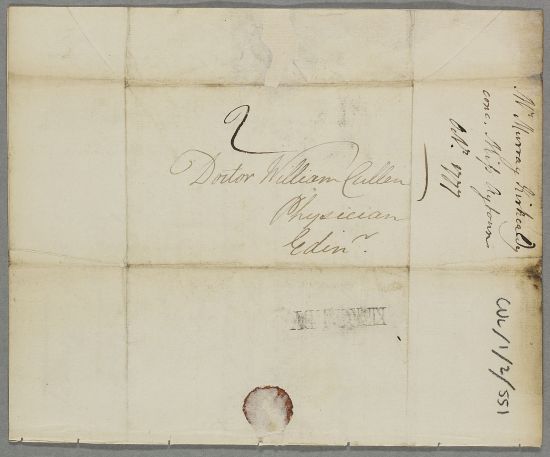 2
Doctor William Cullen
Physician
Edinr.
Mr. Murray Kirkcaldy
conc. Miss Aytoun
Octr. 1777
KIRKCALDY
CUL/1/2/551